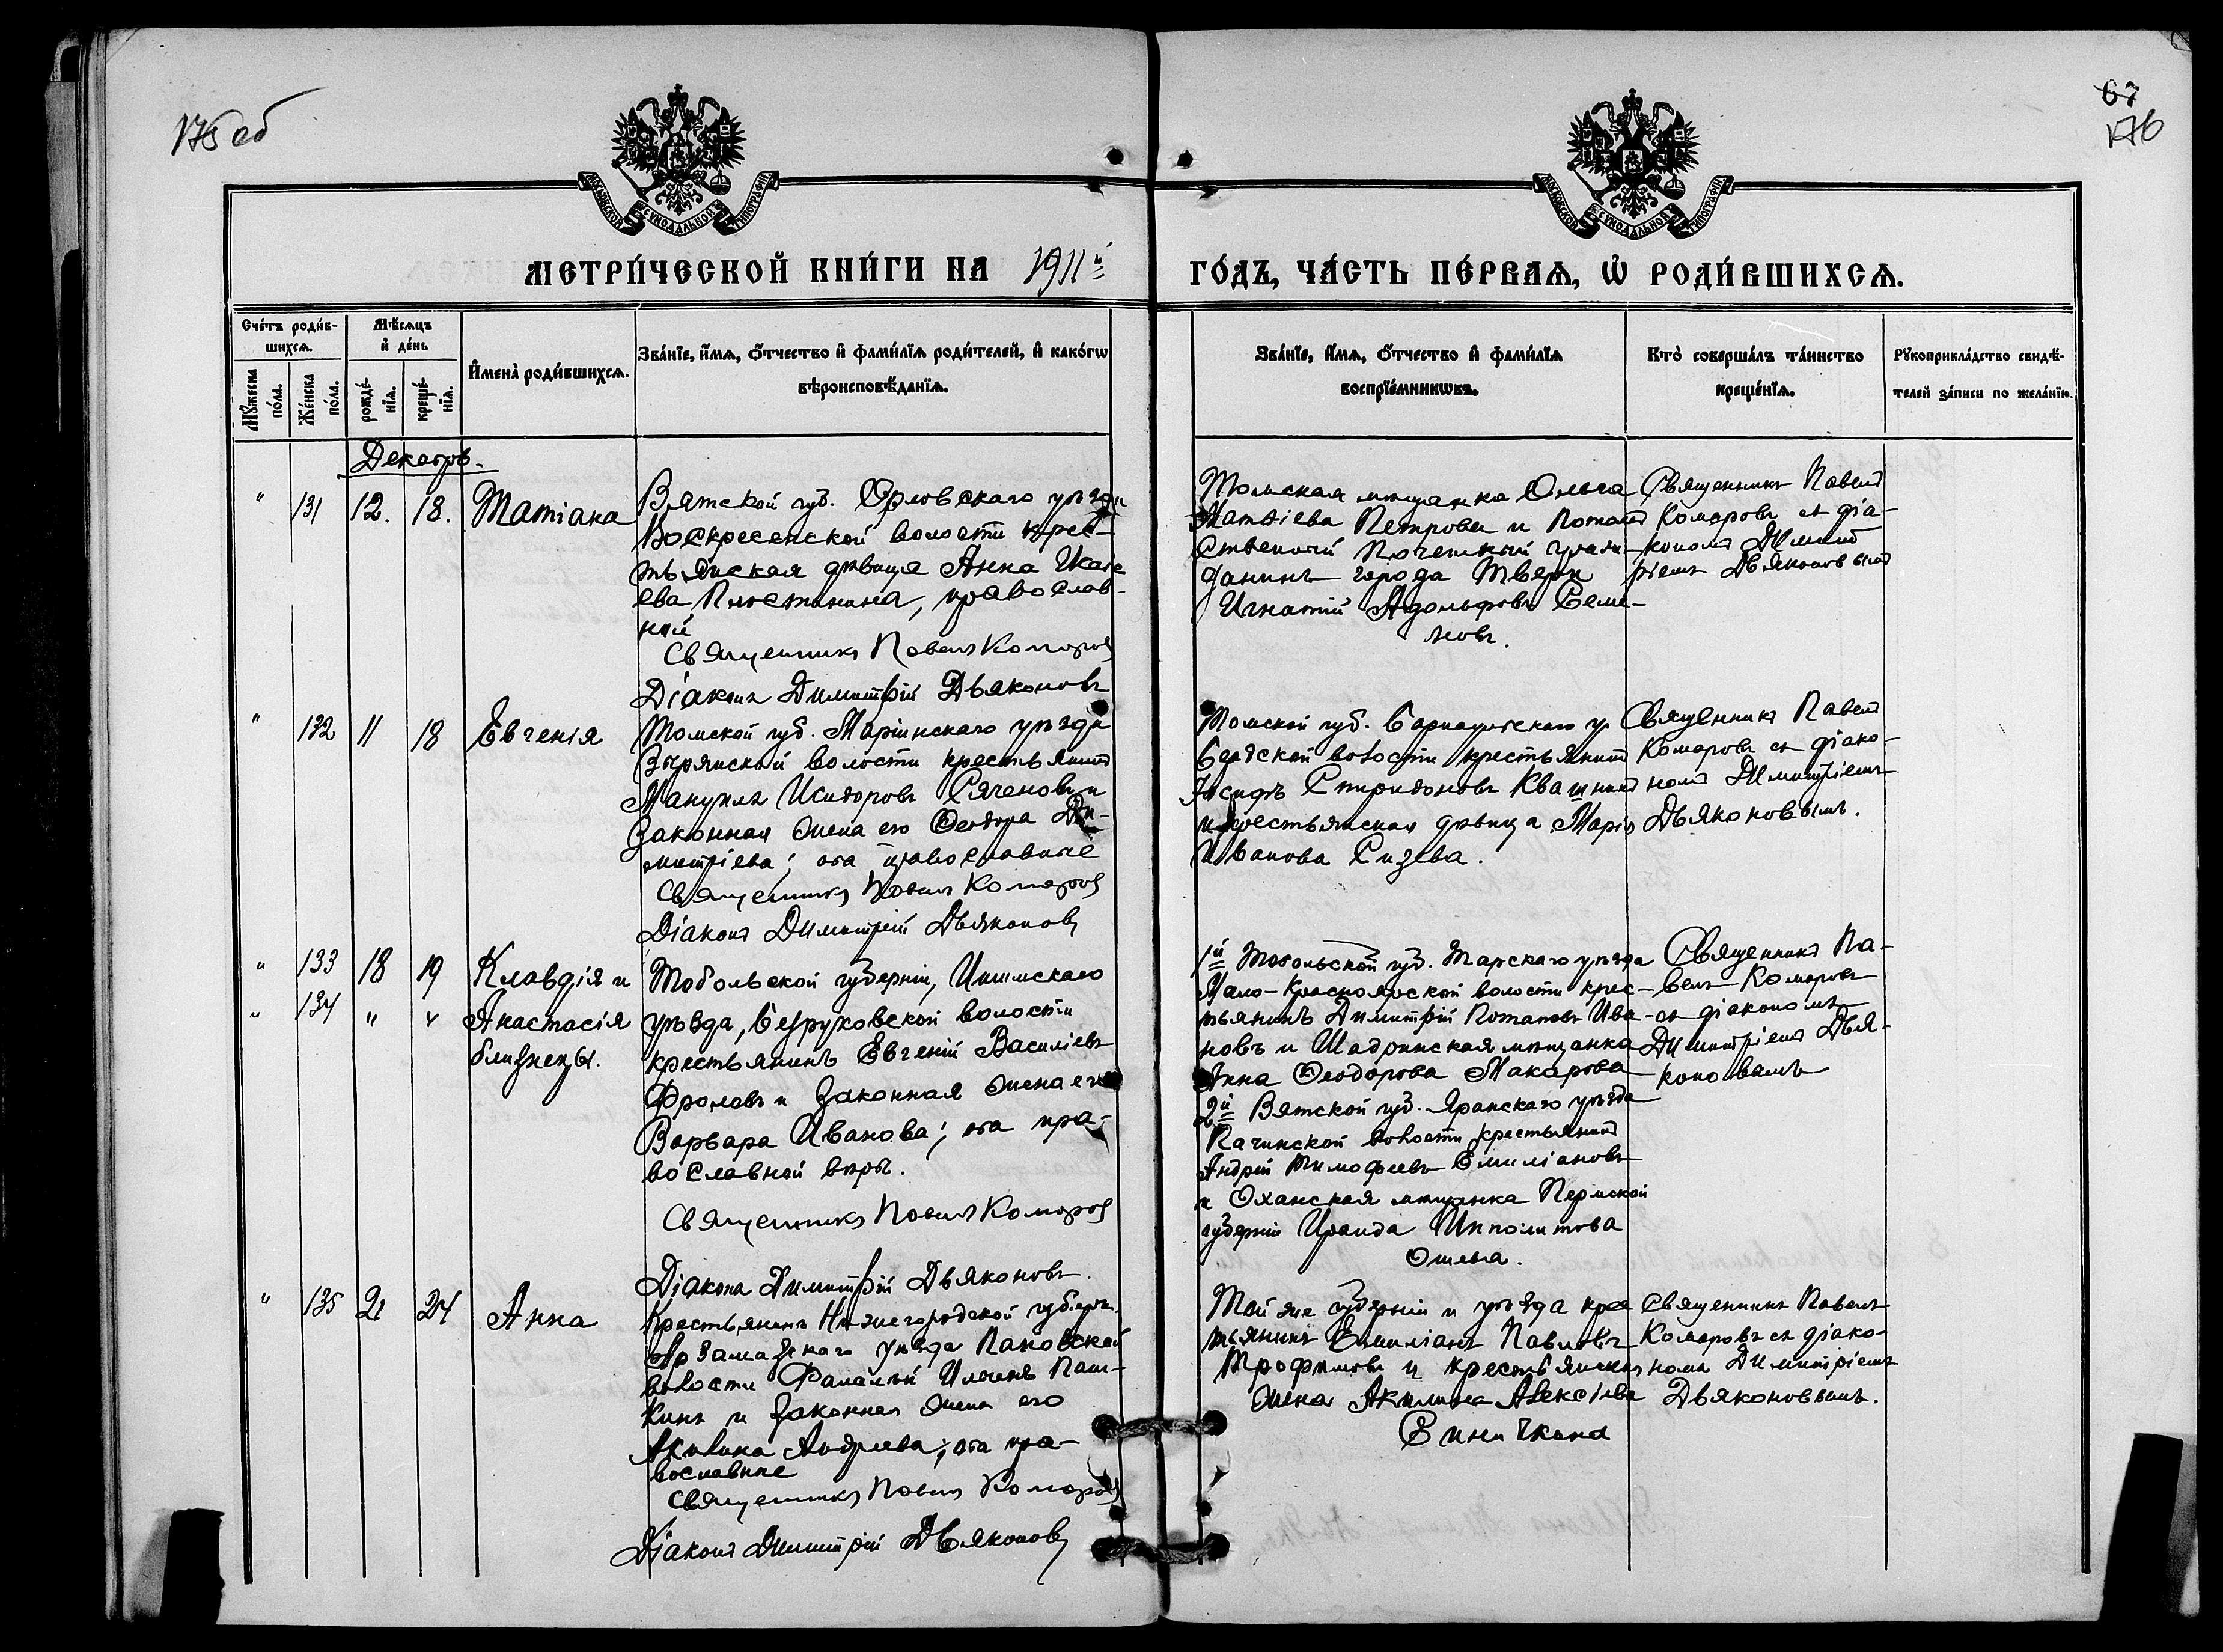 175 об
67
176
МОСКОВСКОЙ СѴНОДАЛЬНОЙ ТИПОГРАФІИ
МОСКОВСКОЙ СѴНОДАЛЬНОЙ ТИПОГРАФІИ
МЕТРИ́ЧЕСКОЙ КНИ́ГИ НА 1911й
ГО́ДЪ, ЧА́СТЬ ПЕ́РВАѦ, Ѡ҆ РОДИ́ВШИХСѦ.
Сче́тъ роди́в-
шихсѧ.
Мѣ́сѧцъ
и҆ де́нь
Мꙋ́жеска
по́ла.
Же́нска
по́ла.
рожде́-
нїѧ.
креще́-
нїѧ.
И҆мена̀ роди́вшихсѧ.
Зва́нїе, и҆́мѧ, ѻ҆́тчество и҆ фами́лїѧ роди́телей, и҆ како́гѡ
вѣроисповѣ́данїѧ.
Зва́нїе, и҆́мѧ, ѻ҆́тчество и҆ фами́лїѧ
воспрїе́мникѡвъ.
Кто̀ соверша́лъ та́инство
креще́нїѧ.
Рꙋкоприкла́дство свидѣ́-
телей за́писи по жела́нїю.
Декабрь.
" 131 12. 18. Татіана
Вятской губ. Орловскаго уѣзда
Воскресенской волости крес-
тьянская дѣвица Анна Исае
ева Плюстинина, православ-
ной
Священникъ Павелъ Комаровъ
Діаконъ Димитрій Дьяконовъ
Томская мѣщанка Ольга
Матѳіева Петрова и Потом
ственный Почетный граж-
данинъ города Твери
Игнатій Адольфовъ Семе-
новъ.
Священникъ Павелъ
Комаровъ съ діа-
кономъ Димит
ріемъ Дьяконовымъ
" 132 11 18 Евгенія
Томской губ. Маріинскаго уѣзда
Зырянской волости крестьянинъ
Мануилъ Исидоровъ Сяченовъ и
законная жена его Ѳеодора Ди-
митріева; оба православные
Священникъ Павелъ Комаровъ
Діаконъ Димитрій Дьяконовъ
Томской губ. Барнаульскаго у.
Бердской волости крестьянинъ
Іосифъ Спиридоновъ Квашнинъ
и крестьянская дѣвица Марія
Иванова Сизева.
Священникъ Павелъ
Комаровъ съ діако-
номъ Димитріемъ
Дьяконовымъ.
" 133 18 19 Клавдія и
" 134 " " Анастасія
близнецы.
Тобольской губерніи, Ишимскаго
уѣзда, Безруковской волости
крестьянинъ Евгеній Василіевъ
Фроловъ и законная жена его
Варвара Иванова; оба пра-
вославной вѣры.
Священникъ Павелъ Комаровъ
Діаконъ Димитрій Дьяконовъ.
1й Тобольской губ. Тарскаго уѣзда
Мало-Красноярской волости крес-
тьянинъ Димитрій Потаповъ Ива-
новъ и Шадринская мѣщанка
Анна Ѳеодорова Макарова
2й Вятской губ. Яранскаго уѣзда
Пачинской волости крестьянинъ
Андрей Тимофеевъ Емиліановъ
и Оханская мѣщанка Пермской
губерніи Ираида Ипполитова
Ошева.
Священникъ Па-
велъ Комаровъ
съ діакономъ
Димитріемъ Дья-
коновымъ
" 135 21 24 Анна
Крестьянинъ Нижегородской губерн.
Арзамазскаго уѣзда Пановской
волости Фалалей Ильинъ Паш-
кинъ и законная жена его
Акилина Андреева; оба пра-
вославные
Священникъ Павелъ Комаровъ
Діаконъ Димитрій Дьяконовъ
Той же губерніи и уѣзда крес
тьянинъ Емиліанъ Павловъ
Трофимовъ и крестьянская
жена Акилина Алексіева
Синичкина
Священникъ Павелъ
Комаровъ съ діако-
номъ Димитріемъ
Дьяконовымъ.